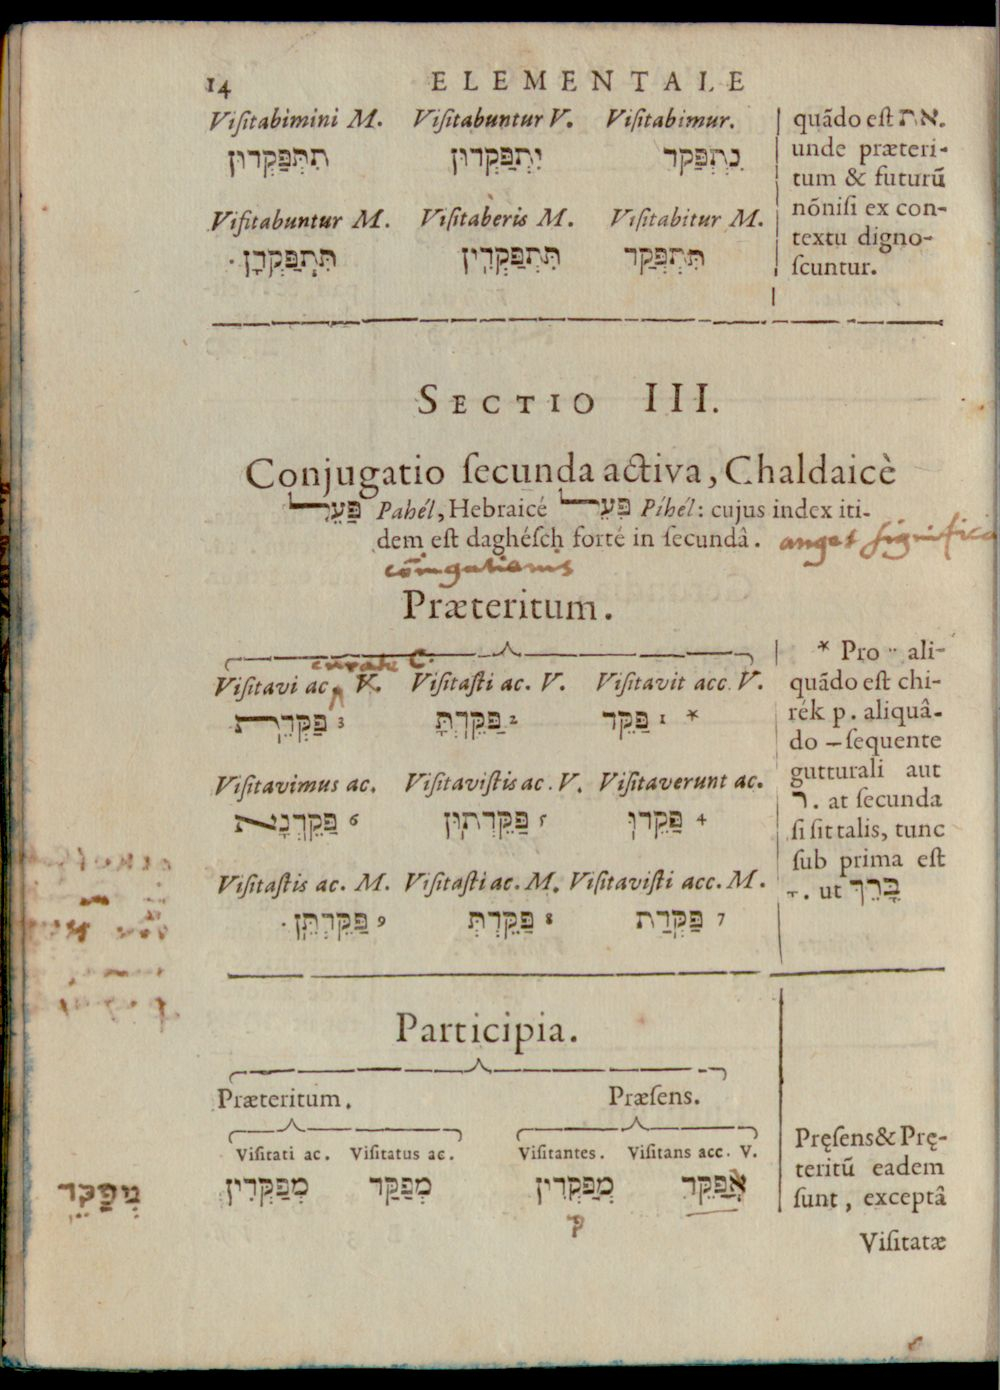 14 ELEMENTALE
Viſitabimini M. Viſitabuntur V. Viſitabimur.
תִּתְּפַּקְדוּן יִתְפַּקְדוּן נִתְפְּקַד
Viſitabuntur M. Viſitaberis M. Viſitabitur M.
תִּתְפַּקְדָן . תִּתְפַּקְדִין תִּתְפְּקַד
quãdo eſt את.
unde præteri-
tum & futurũ
nõniſi ex con-
textu digno-
ſcuntur.
SECTIO III.
Conjugatio ſecunda activa, Chaldaicè
פַּעֵל Pahél, Hebraicé פִּעֵל Pihél: cujus index iti-
dem eſt daghéſch forté in ſecundâ. auget ſignifica
Præteritum.
Viſitavi ac. V. Viſitaſti ac. V. Viſitavit acc. V.
3 פַּקְּדֵת 2 פַּקֵּדְתָּ * 1 פַּקֵּד
Viſitavimus ac. Viſitaviſtis ac. V. Viſitaverunt ac.
6 פַּקֵּדְנָא 5 פַּקֵּדְתּוּן 4 פַּקֵּדוּ
Viſitaſtis ac. M. Viſitaſti ac. M. Viſitaviſti acc. M.
9 פַּקֵּדְתֵּן . 8 פַּקֵּדְתְּ 7 פַּקְּדַת
* Pro ·· ali-
quãdo eſt chi-
rék p. aliquâ-
do – ſequente
gutturali aut
ר. at ſecunda
ſi ſit talis, tunc
ſub prima eſt
ָ. ut בָּרֵךְ
Participia.
Præteritum. Præſens.
Viſitati ac. Viſitatus ac. Viſitantes. Viſitans acc. V.
מְפַקְּדִין מְפַקַּד מְפַקְּדִין מְפַקֵּד
מְיפַקֵּד
P
Pręſens & Prę-
teritũ eadem
ſunt, exceptâ
Viſitatæ